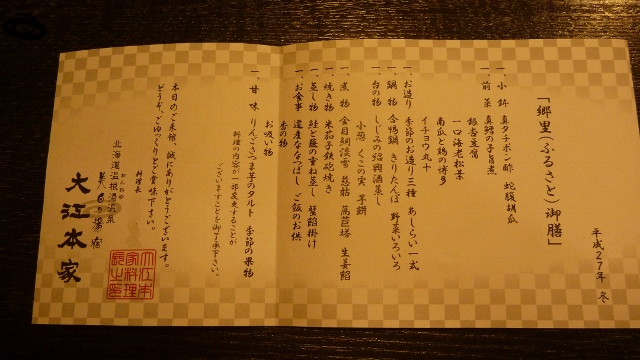 平成27年 冬
「郷里(ふるさと)御膳」
一、小鉢 真タチポン酢 蛇腹胡瓜
一、前菜 真鱈の子旨煮
銀杏豆腐
一口海老松葉
南瓜と鶏の博多
イチョウ丸十
一、お造り 季節のお造り三種 あしらい一式
一、鍋物 合鴨鍋 きりたんぽ 野菜いろいろ
一、台の物 しじみの紹興酒蒸し
小葱 くこの実 芋餅
一、煮物 金目鯛淡雪 慈姑 萵苣塔 生姜餡
一、焼き物 米茄子鉄砲焼き
一、蒸し物 鮭と蕪の重ね蒸し 蟹餡掛け
一、お食事 道産ななつぼし ご飯のお供
香の物
お吸い物
一、甘味 りんごさつま芋のタルト 季節の果物
料理の内容が一部変更することが
ございますことを御了承下さい。
本日のご来館、誠にありがとうございます。
どうぞ、ごゆっくりとご賞味下さい。
料理長
北海道温根湯温泉
おんねゆ
美白の湯宿
大江本家
大江本
家料理
長之印